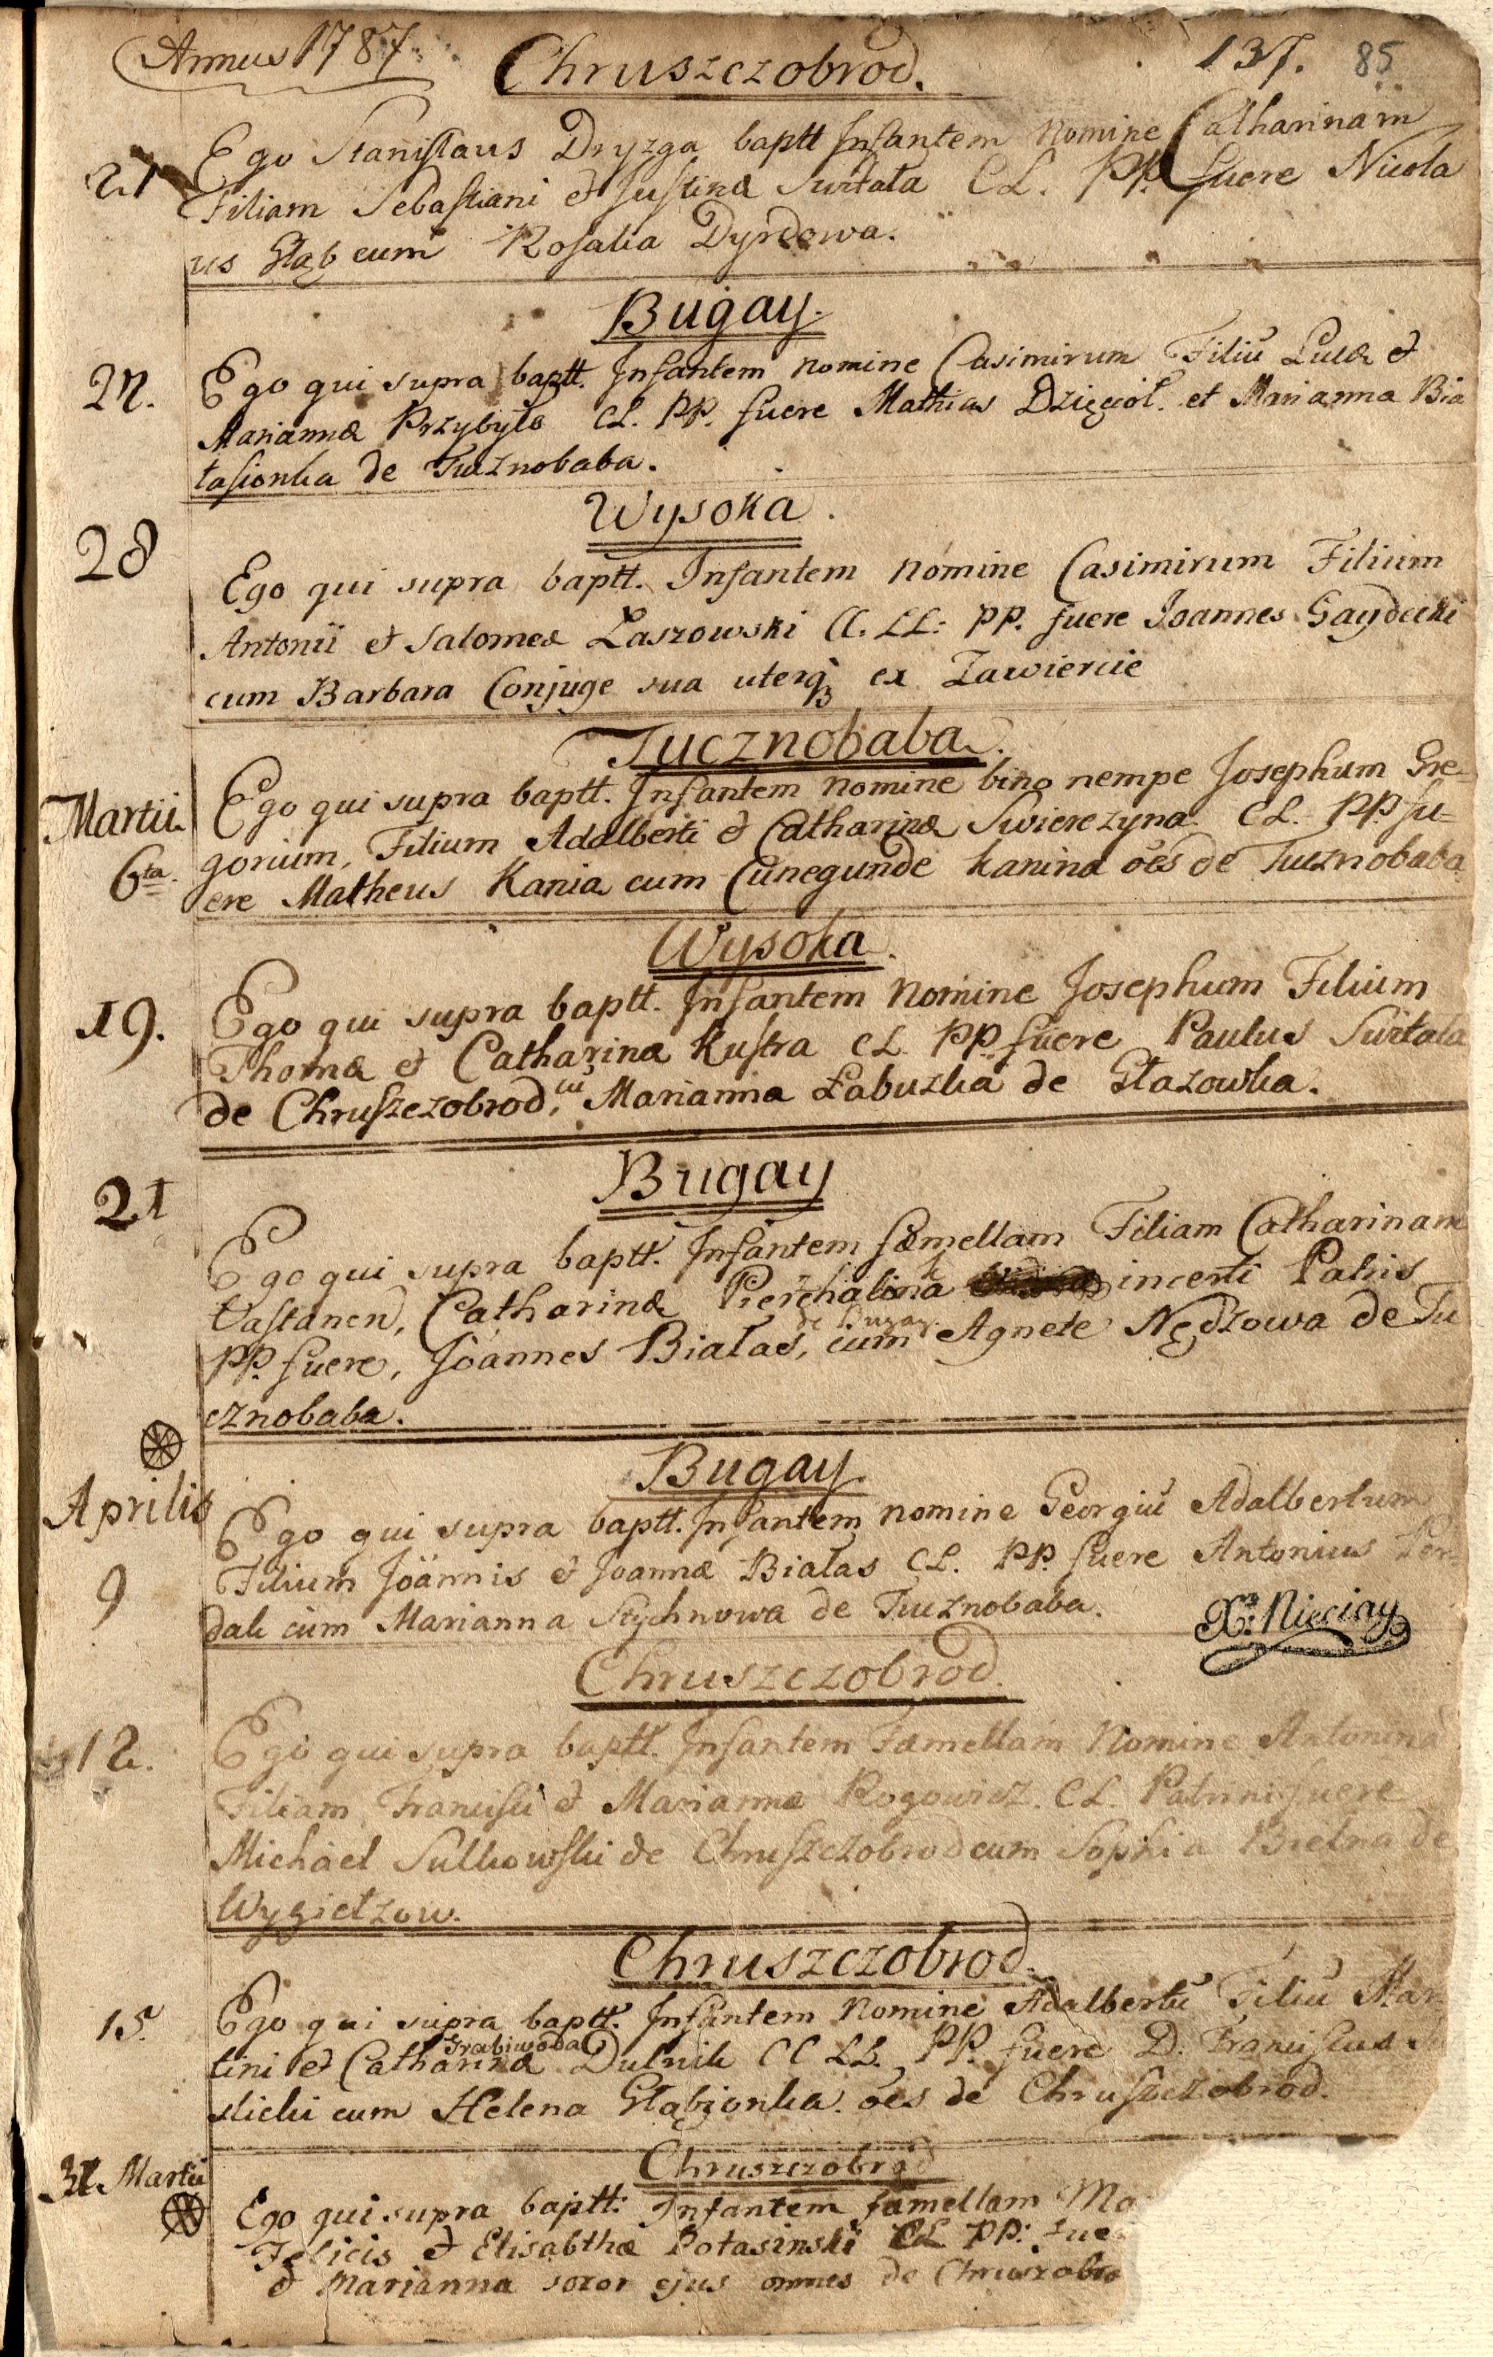 Annus 1787. Chruszczobrod. 137. 85
27 Ego Stanislaus Dryzga baptt Infantem nomine Catharinam
Filiam Sebastiani et Justinæ Switała CL. PP. fuere Nicola
us Głąb cum Rosalia Dyrdowa.
Bugay.
27. Ego qui supra baptt. Infantem nomine Casimirum Filiū Lucæ et
Mariannæ Przybyło CL. PP. fuere Mathias Dzięcioł. et Marianna Bia
łasionka de Tucznobaba.
Wysoka.
28 Ego qui supra baptt. Infantem nomine Casimirum Filium
Antonii et Salomeæ Laszowski CC. LL: PP. fuere Joannes Gaydecki
cum Barbara Conjuge sua uterq3 ex Zawiercie
Tucznobaba.
Martii 6ta. Ego qui supra baptt. Infantem nomine bino nempe Josephum Gre=
gorium, Filium Adalberti et Catharinæ Swierczyna. CL. PP fu=
ere Matheus Kania cum Cunegunde Kanina oēs de Tucznobaba
Wysoka.
19. Ego qui supra baptt. Infantem Nomine Josephum Filium
Thomæ et Catharinæ Kustra CL PP. fuere Paulus Switała
de Chruszczobrod, cū Marianna Łabuzka de Głazowka.
Bugay
21 Ego qui supra baptt. Infantem fæmellam Filiam Catharinam
Castanen, Catharinæ Pierchalina incerti Patris
de Bugay
PP. fuere, Joannes Białas, cum Agnete Nędzowa de Tu
cznobaba.
Bugay.
Aprilis 9 Ego qui supra baptt. Infantem nomine Georgiū Adalbertum
Filium Joannis et Joannæ Białas CL. PP. fuere Antonius Per=
dak cum Marianna Stychnowa de Tucznobaba.
X: Nieciąy
Chruszczobrod.
12. Ego qui supra baptt. Infantem Fæmellam Nomine Antoninā
Filiam Francisci et Mariannæ Rogowicz. CL. Patrini fuere
Michael Sulkowski de Chruszczobrod cum Sophia Bielna de
Wygiełzow.
Chruszczobrod.
15. Ego qui supra baptt. Infantem Nomine Adalbertū Filiū Mar
Grabiwoda
tini et Catharinæ Dulnik CC LL. PP. fuere D. Franciscus
slicki cum Helena Głąbzonka. oēs de Chruszczobrod.
Chruszczobrod
31. Martii Ego qui supra baptt: Infantem fæmellam Ma
Felicis et Elisabthæ Potasinski CL PP: fue
et Marianna soror ejus omnes de Chruszobro